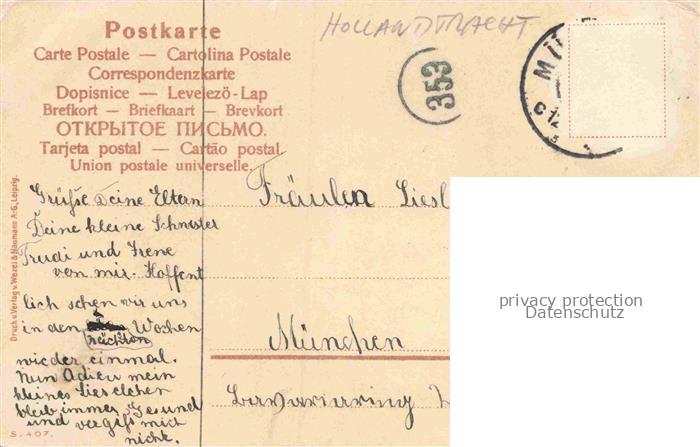 HOLLANDTRACHT
Postkarte
Carte Postale — Cartolina Postale
Correspondenzkarte
Dopisnice — Levelező-Lap
Brefkort — Briefkaart — Brevkort
ОТКРЫТОЕ ПИСЬМО.
Tarjeta postal — Cartão postal.
Union postale universelle.
353
MÜ
C 12
Druck u. Verlag v. Wezel & Naumann A.-G., Leipzig.
Grüße Deine Eltern
Deine kleine Schwester
Trudi und Irene
von mir. Hoffent
lich sehen wir uns
in den Wochen
nächsten
wieder einmal.
Nun Adieu mein
kleines Lieselchen
bleib immer Gesund
und vergiß mich
nicht.
S. 407.
Fräulen Liesl
München
Bavariaring
privacy protection
Datenschutz